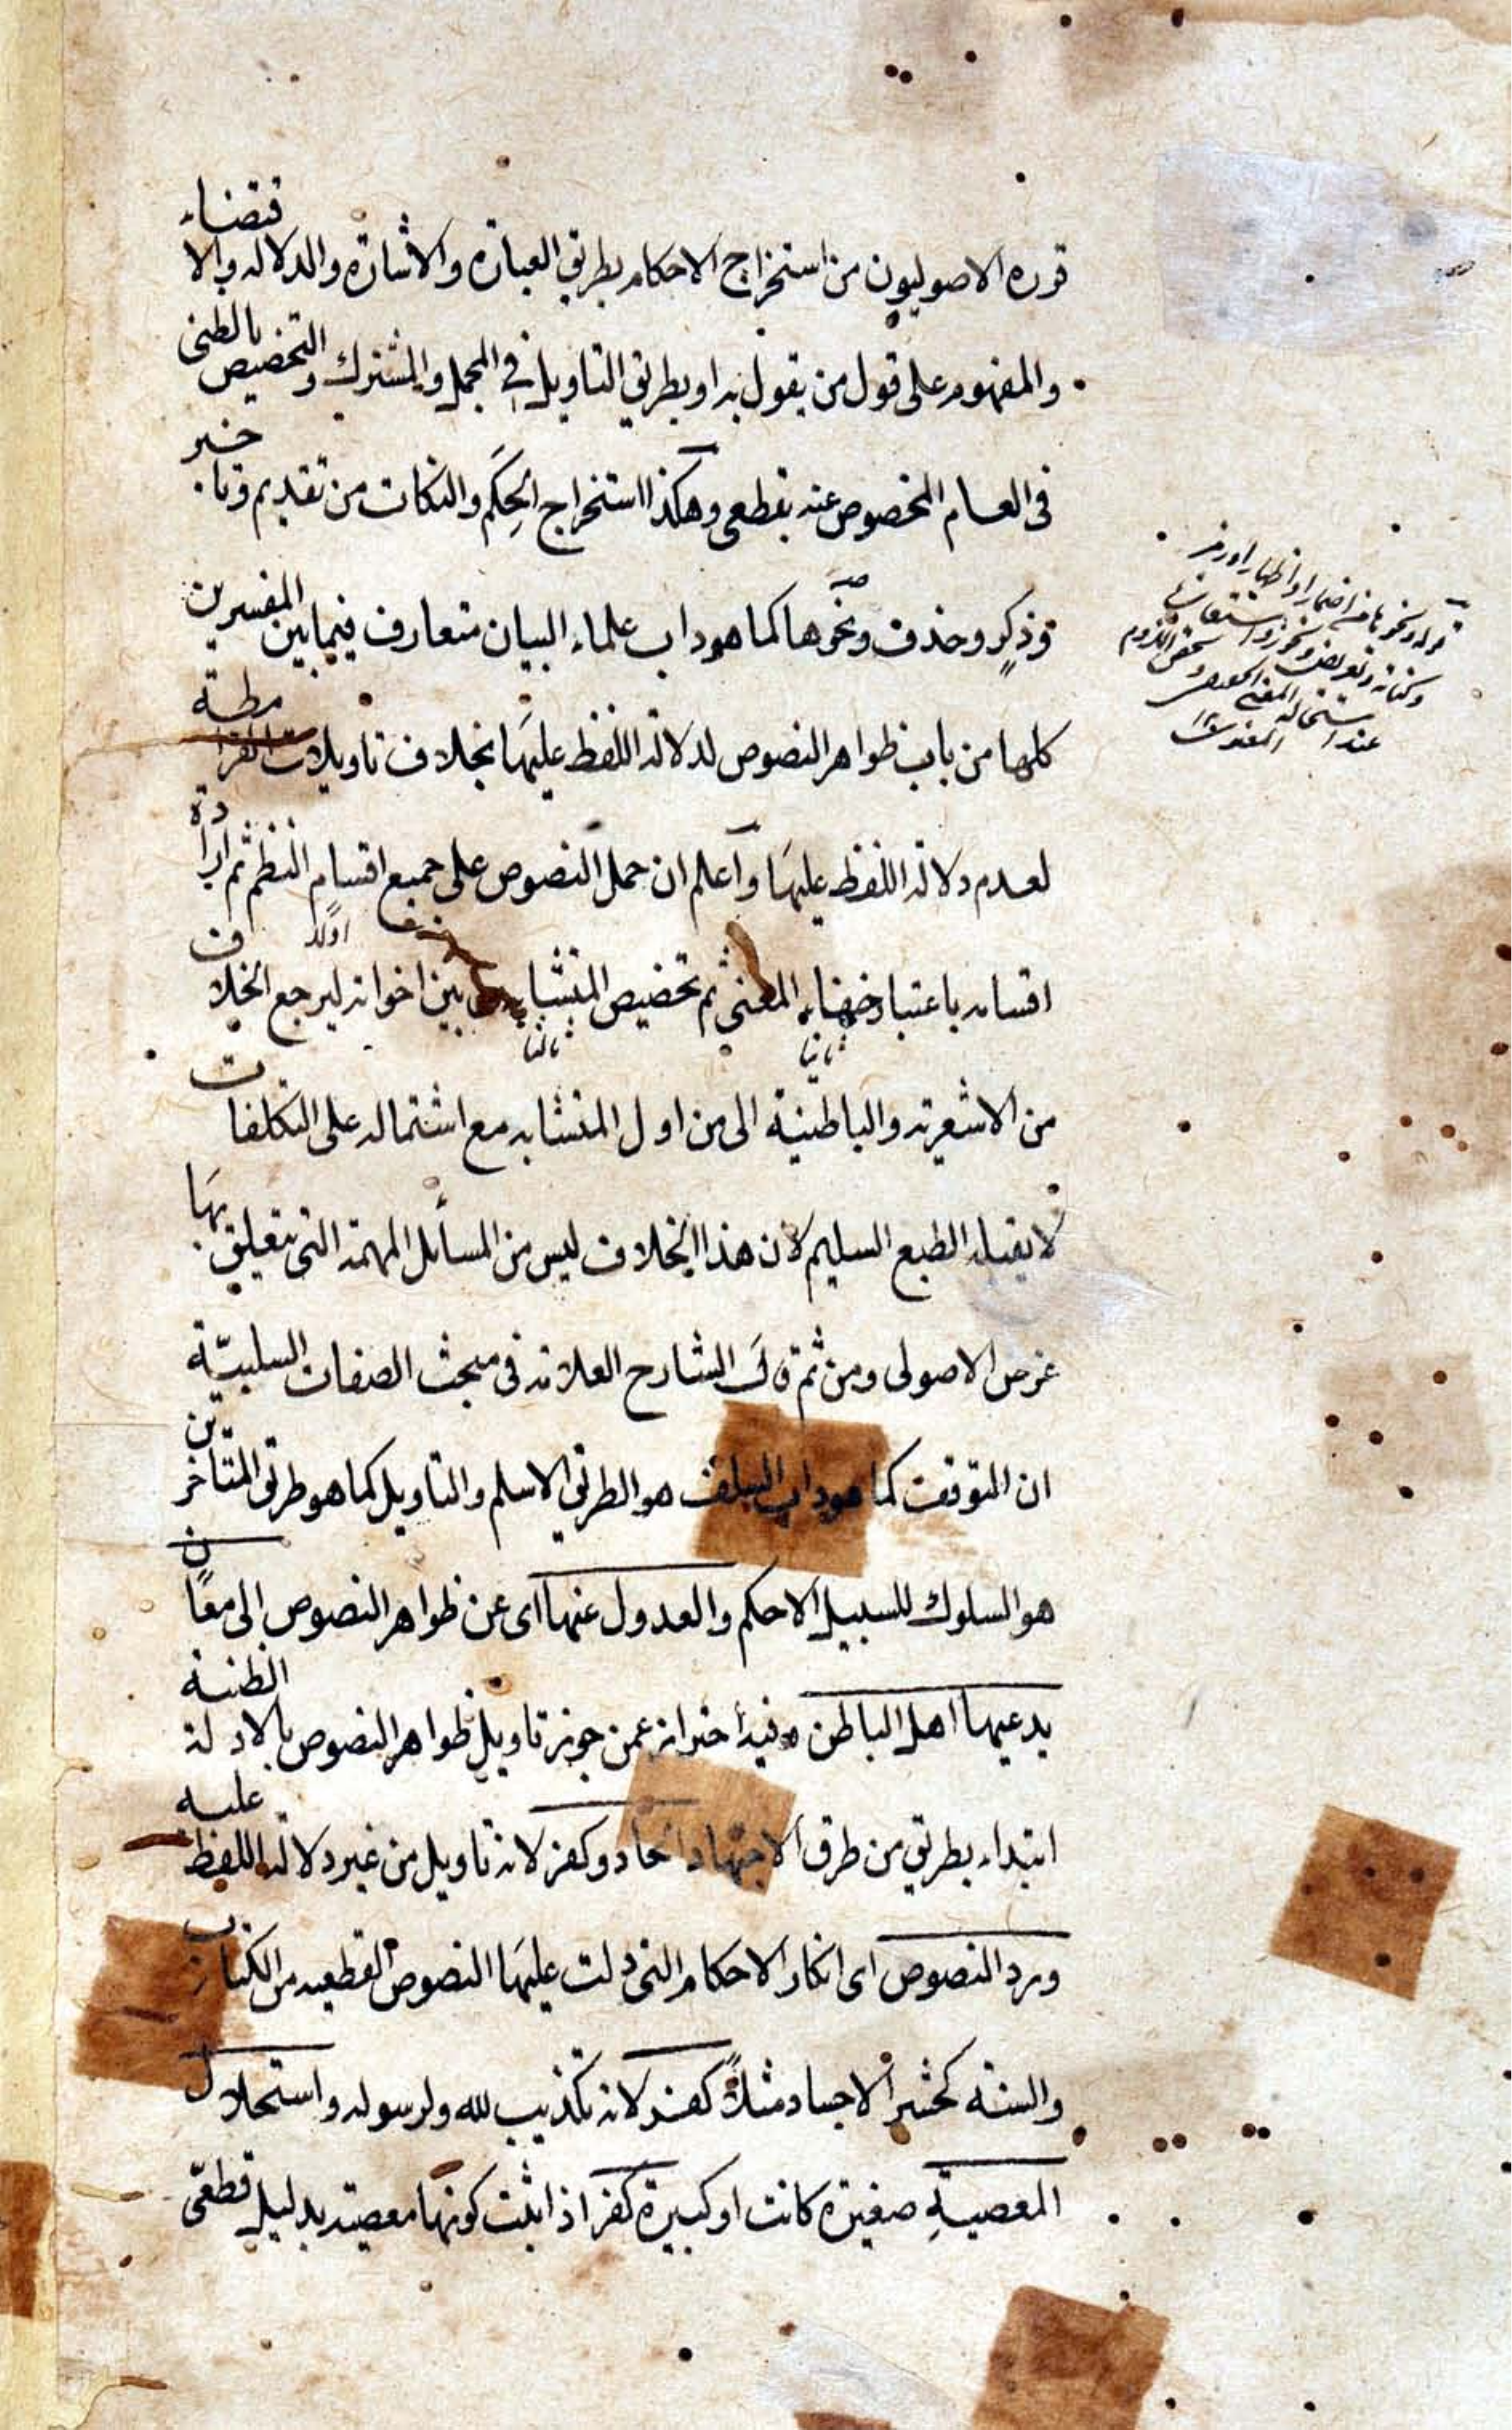 قرره الاصوليون من استخراج الاحكام بطريق العبارة والاشارة والدلالة والاقتضاء
والمفهوم على قول من يقول به او بطريق التاويل في المجمل والمشترك والتخصيص بالظنى
فى العام المخصوص عنه بقطعى وهكذا استخراج الحِكَم والنكات من تقديم وتاخير
وذكر وحذف ونحوها كما هو داب علماء البيان متعارف فيما بين المفسرين
كلها من باب ظواهر النصوص لدلالة اللفظ عليها بخلاف تاويلات القرامطة
لعدم دلالة اللفظ عليها واعلم ان حمل النصوص على جميع اقسام النظم ثم ارادة
اولا
اقسامه باعتبار خفاء المعنى ثم تخصيص المتشابه من بين اخوانه ليرجع الخلاف
ثانيا ثالثا
من الاشعرية والباطنية الى من اول المتشابه مع اشتماله على التكلفات
لا يقبله الطبع السليم لان هذا الخلاف ليس من المسائل المهمة التى يتعلق بها
غرض الاصولى ومن ثم قال الشارح العلامة فى مبحث الصفات السلبيّة
ان التوقف كما هو داب السلف هو الطريق الاسلم والتاويل كما هو طريق المتاخرين
هو السلوك للسبيل الاحكم والعدول عنها اى عن ظواهر النصوص الى معان
يدعيها اهل الباطن فيه احتراز عمن جوز تاويل ظواهر النصوص بالادلة الظنية
ابتداء بطريق من طرق الاجتهاد الحاد وكفر لانه تاويل من غير دلالة اللفظ عليه
ورد النصوص اى انكار الاحكام التى دلت عليها النصوص القطعية من الكتاب
والسنة كحشر الاجساد مثلاً كفر لانه تكذيب لله ولرسوله واستحلال
المعصيةِ صغيرة كانت او كبيرة كفر اذا ثبت كونها معصية بدليل قطعىّ
قوله ونحوها من اضمار او اظهار او رمز
وكناية وتعريض وتجوز واستعارات